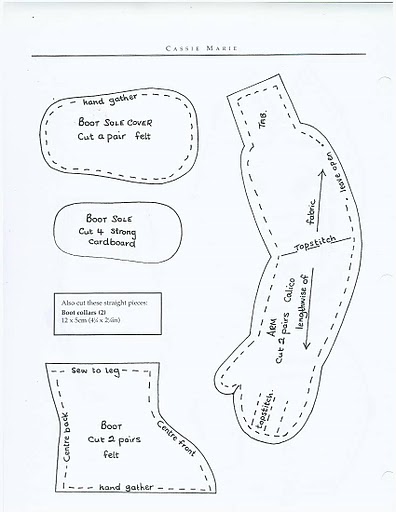 CASSIE MARIE
hand gather
BOOT SOLE COVER
Cut a pair felt
BOOT SOLE
Cut 4 Strong
Cardboard
Also cut these straight pieces:
Boot collars (2)
12 x 5cm (4¾ x 2in)
Sew to leg
Centre back
Centre front
BOOT
Cut 2 pairs
felt
hand gather
TAB.
leave open
fabric
Topstitch
ARM
Cut 2 pairs Calico
lengthwise of
Topstitch.